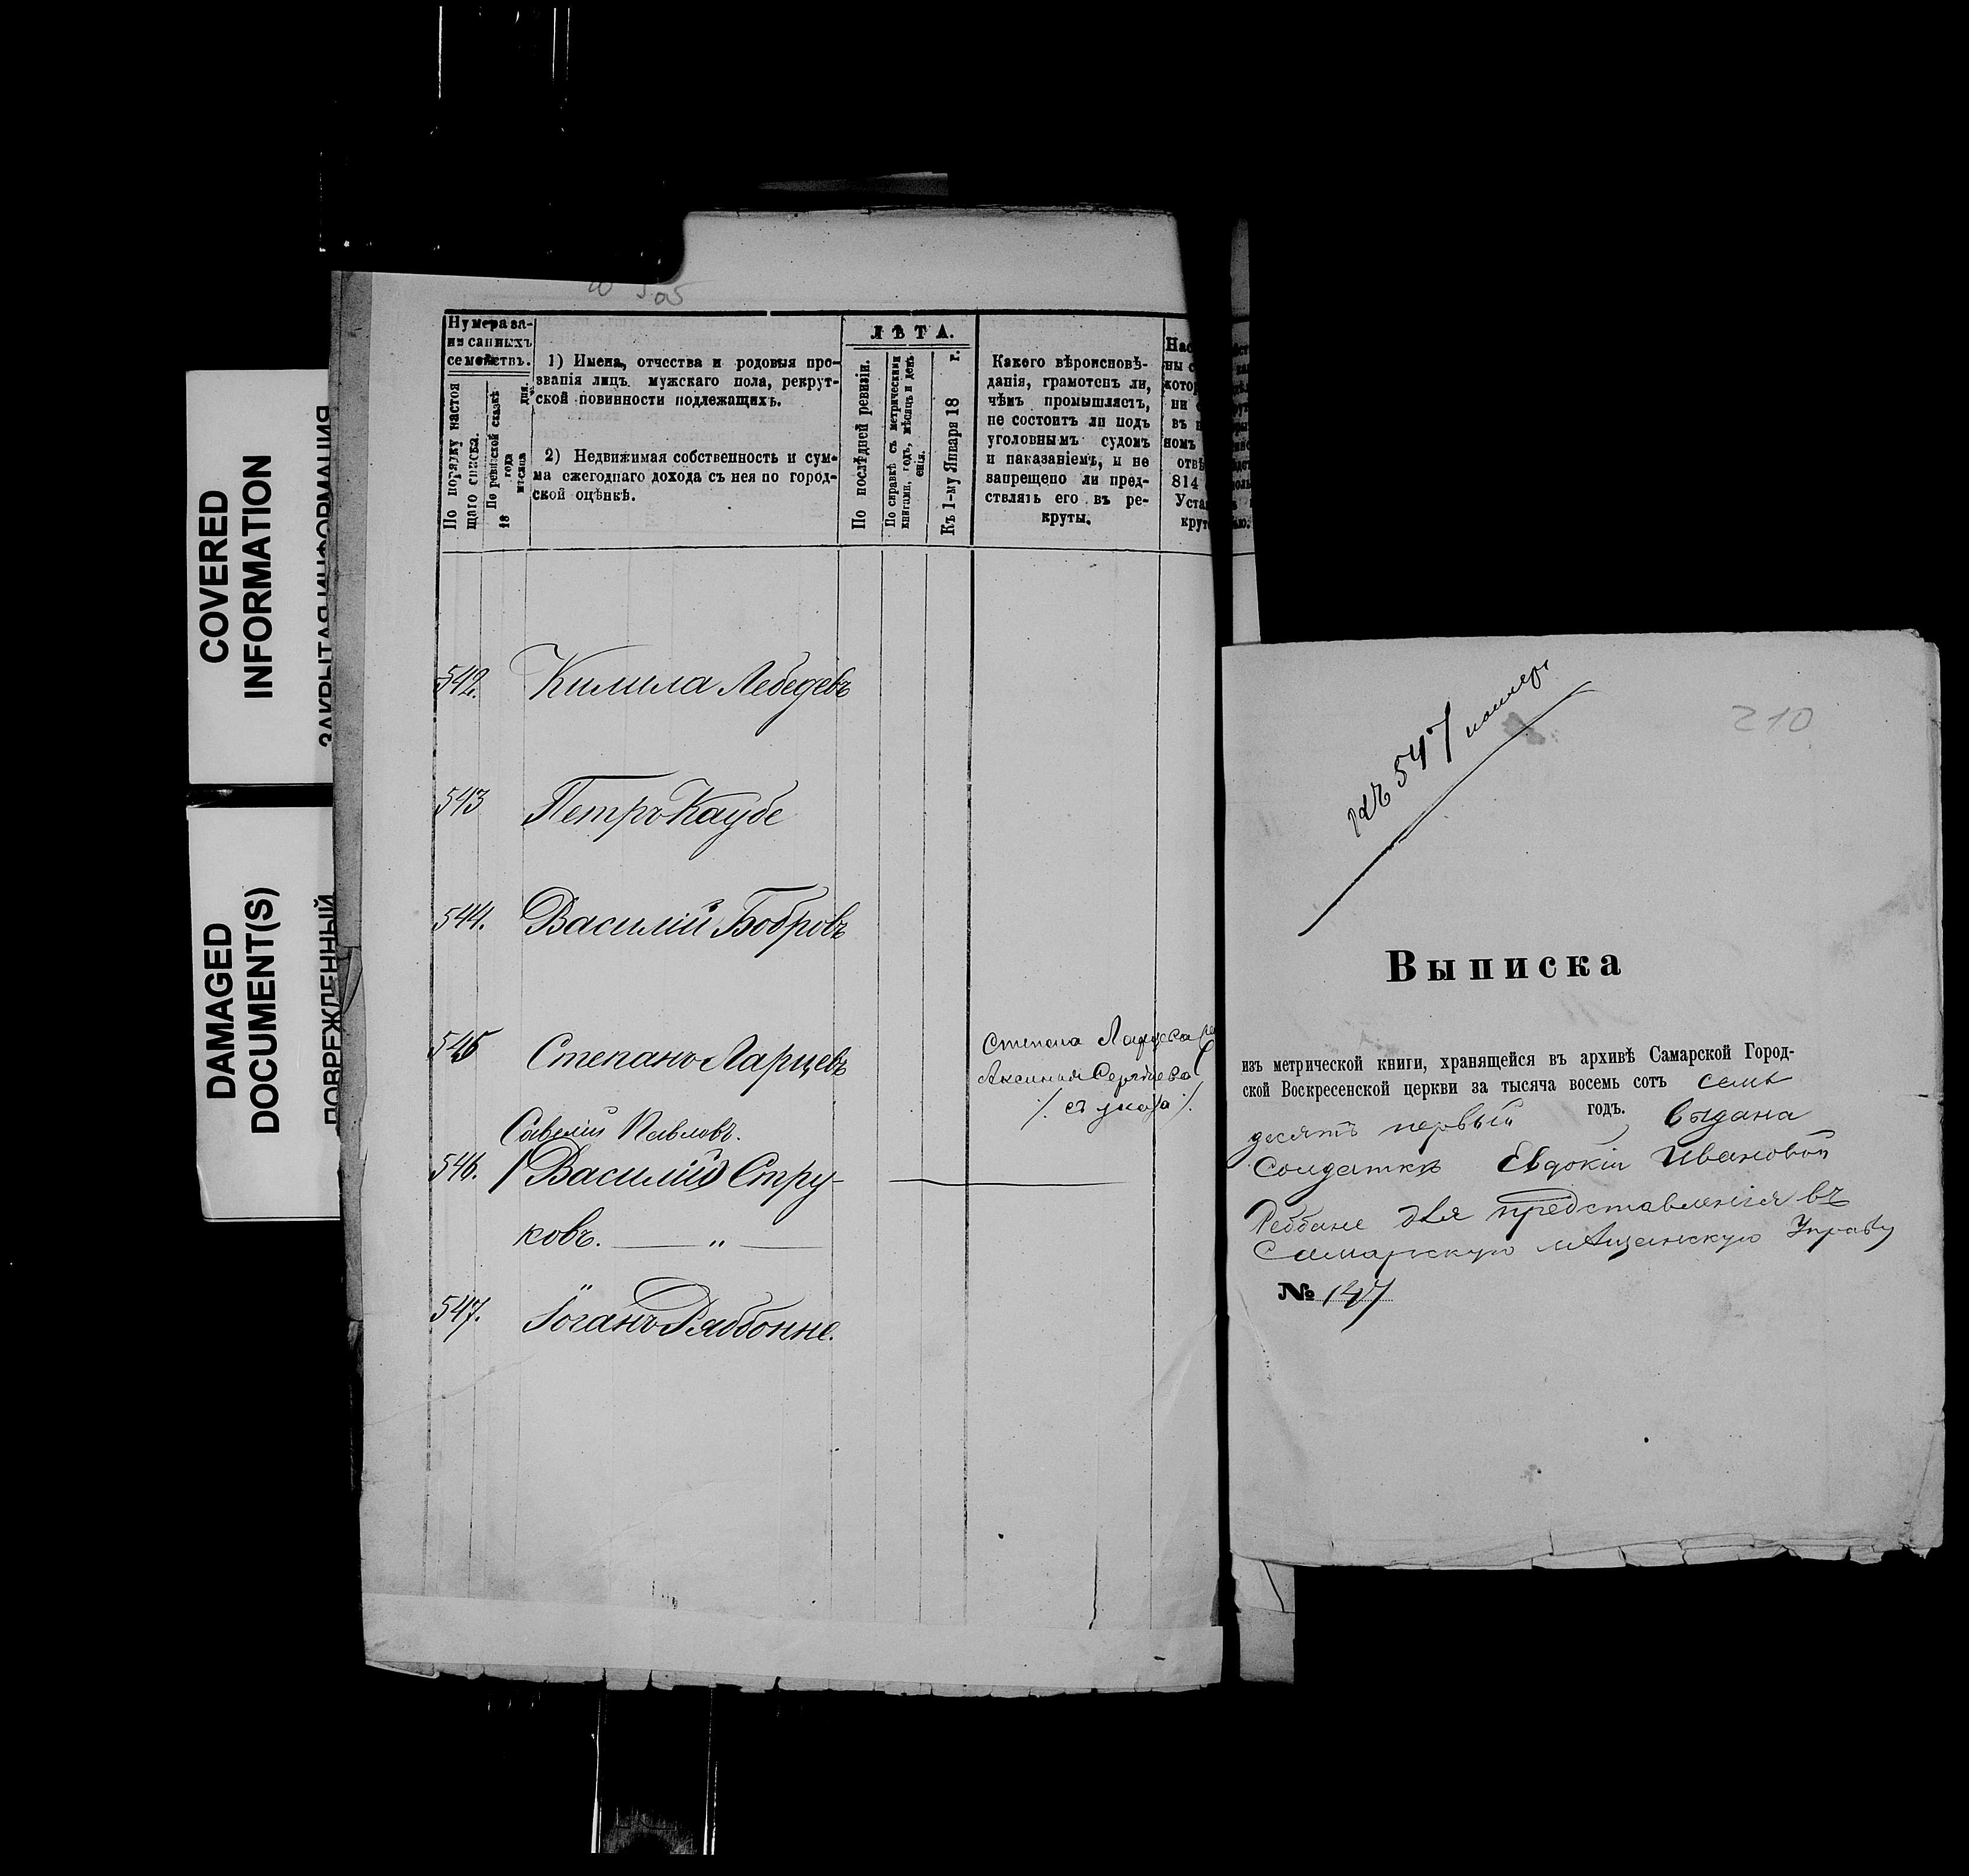 COVERED
INFORMATION
ЗАКРЫТАЯ ИНФОРМАЦИЯ
DAMAGED
DOCUMENT(S)
ПОВРЕЖДЕННЫЙ
Нумера за-
писанныхъ
семействъ.
По порядку настоя
щаго списка.
По ревизской сказкѣ
18 года
мѣсяца дня.
1) Имена, отчества и родовыя про-
званія лицъ мужскаго пола, рекрут-
ской повинности подлежащихъ.
2) Недвижимая собственность и сум-
ма ежегоднаго дохода съ нея по город-
ской оцѣнкѣ.
ЛѢТА.
По послѣдней ревизіи.
По справкѣ съ метрическими
книгами, годъ, мѣсяцъ и день
Къ 1-му Января 18 г.
Какого вѣроисповѣ-
данія, грамотенъ ли,
чѣмъ промышляетъ,
не состоитъ ли подъ
уголовнымъ судомъ
и наказаніемъ, и не
запрещено ли пред-
ствлять его въ ре-
круты.
542. Лебедевъ
543 Петръ Каубе
544. Василій Бобровъ
545 Степанъ Ларцевъ
Савелій Павловъ.
546. (Василій) Стру-
ковъ. — „ —
547. Іоганъ Ряббонне.
210
547
Выписка
изъ метрической книги, хранящейся въ архивѣ Самарской Город-
ской Воскресенской церкви за тысяча восемь сотъ семь
десятъ первый годъ, выдана
Солдаткѣ Евдокіи Ивановой
Реббане для представленія въ
Самарскую мѣщанскую Управу
№ 147